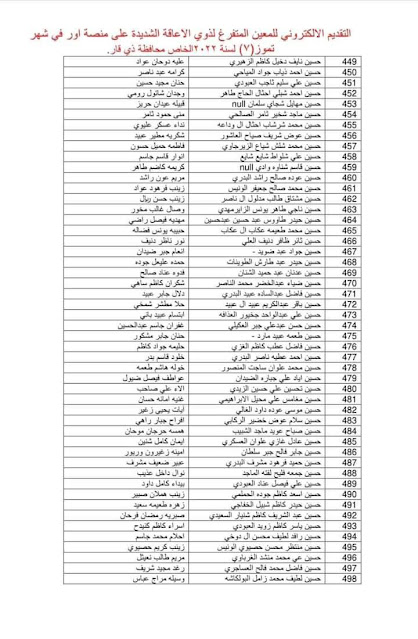 التقديم الالكتروني للمعين المتفرغ لذوي الاعاقة الشديدة على منصة اور في شهر
تموز(٧) لسنة ٢٠٢٢الخاص محافظة ذي قار.
449 حسين نايف دخيل كاظم الزهيري عليه دوحان عواد
450 حسين احمد ذياب جواد المياحي كرامه عبد ناصر
451 حسين علي سليم ثاجب العبودي حنان مجيد حسين
452 حسين احمد شبلي احثال الحاج طاهر وجدان شاتول رومي
453 حسين مهايل شجاي سلمان null قبيله عيدان حريز
454 حسين ماجد شخير ثامر الصالحي منى حمود ثامر
455 حسين محمد شرشاب احثال ال وداعه نداء عسكر عليوي
456 حسين عوض شريف صباح العاشور شكريه مطير عبيد
457 حسين محمد شلش شياع الزيرجاوي فاطمه حميل حسون
458 حسين علي شلواط شايع شايع انوار قاسم جاسم
459 حسين قاسم شناوه وادي null كريمه كاظم طاهر
460 حسين عوده صالح راشد البدري مريم عون راشد
461 حسين محمد صالح جعيفر الونيس زينب فرهود عواد
462 حسين مشتاق طالب مدلول ال ناصر زينب حسن
463 حسين ناجي طاهر يونس الزايرمهدي وصال غالب
464 حسين حيدر طاووس عبد حسين عبدحسين مهديه فيصل راضي
465 حسين محمد طعيمه عكاب ال عكاب حبيبه يونس فضاله
466 حسين ثائر ظافر دنيف العلي نور ناظر دنيف
467 حسين جواد عبد ضويد - انعام جبر ضيدان
468 حسين حيدر عبد طارش الطوينات حمده عليعل جوده
469 حسين عدنان عبد حميد الشنان فدوه عناد صالح
470 حسين ضياء عبدالخضر محمد الناصر شكران كاظم ساهي
471 حسين فاضل عبدالساده عبيد البدري دلال جابر عبيد
472 حسين باقر عبدالكريم عبيد ال عبيد حلا مطشر شمخي
473 حسين علي عبدالواحد جخيور العذافه ابتسام عبيد باني
474 حسين حسن عبدعلي جبر العكيلي غفران جاسم عبدالحسين
475 حسين طعمه عبيد مارد - حنان جابر مشكور
476 حسين فاضل عطب كاظم الغزي حليمه جواد كاظم
477 حسين احمد عطيه ناصر البدري خلود قاسم بدر
478 حسين محمد علوان ساجت المنصور خوله هاشم طعمه
479 حسين اياد علي جباره الضيدان عواطف فيصل ضيول
480 حسين تحسين علي حسين الزيدي الاء علي صاحب
481 حسين مغامس علي محيل الابراهيمي غنيه امانه حسان
482 حسين موسى عوده داود الغالي آيات يحيى زغير
483 حسين سلام عوض خضير الركابي افراح جبار راهي
484 حسين صباح عويد ماجد الشبيب همسه حرجان موحان
485 حسين عادل غازي علوان العسكري ايمان كامل شنين
486 حسين جابر فالح جبر سلطان امينه زغيرون
487 حسين حميد فرهود مشرف البدري عبير ضعيف مشرف
488 حسين جمعه فليح لفته الماجد نوال داخل عذيب
489 حسين علي فيصل عناد العبودي بيداء كامل داود
490 حسين اسعد كاظم جوده الحطمي زينب هملان صبير
491 حسين حيدر كاظم شبيل الخفاجي زهره طعيمه سعيد
492 حسين عبد الشريف كاظم شنيار السعيدي صبريه رمضان فرحان
493 حسين ياسر كاظم زويد العبودي اسراء كاظم كنيدح
494 حسين رافد لطيف محسن ال دوخي احلام محمد جاسم
495 حسين منتظر محسن حصيوي الونيس زينب كريم حصيوي
496 حسين عي محمد منشد الغرباوي مريم طالب نعيثل
497 حسين فاضل محمد فالح العساجري رغد مجيد شريف
498 حسين لطيف محمد زامل البولكاشه وسيله مراح عباس